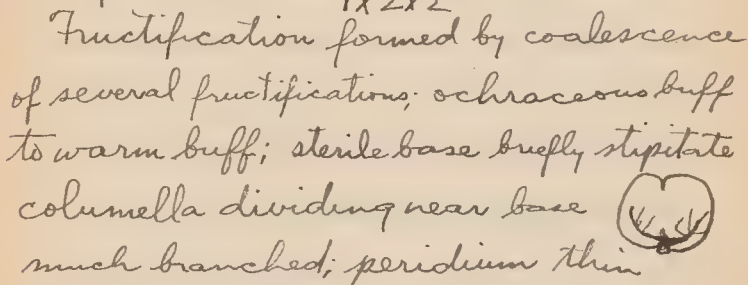 1x2x2
Fructification formed by coalescence
of several fructifications; ochraceous buff
to warm buff; sterile base briefly stipitate
columella dividing near base
much branched; peridium thin